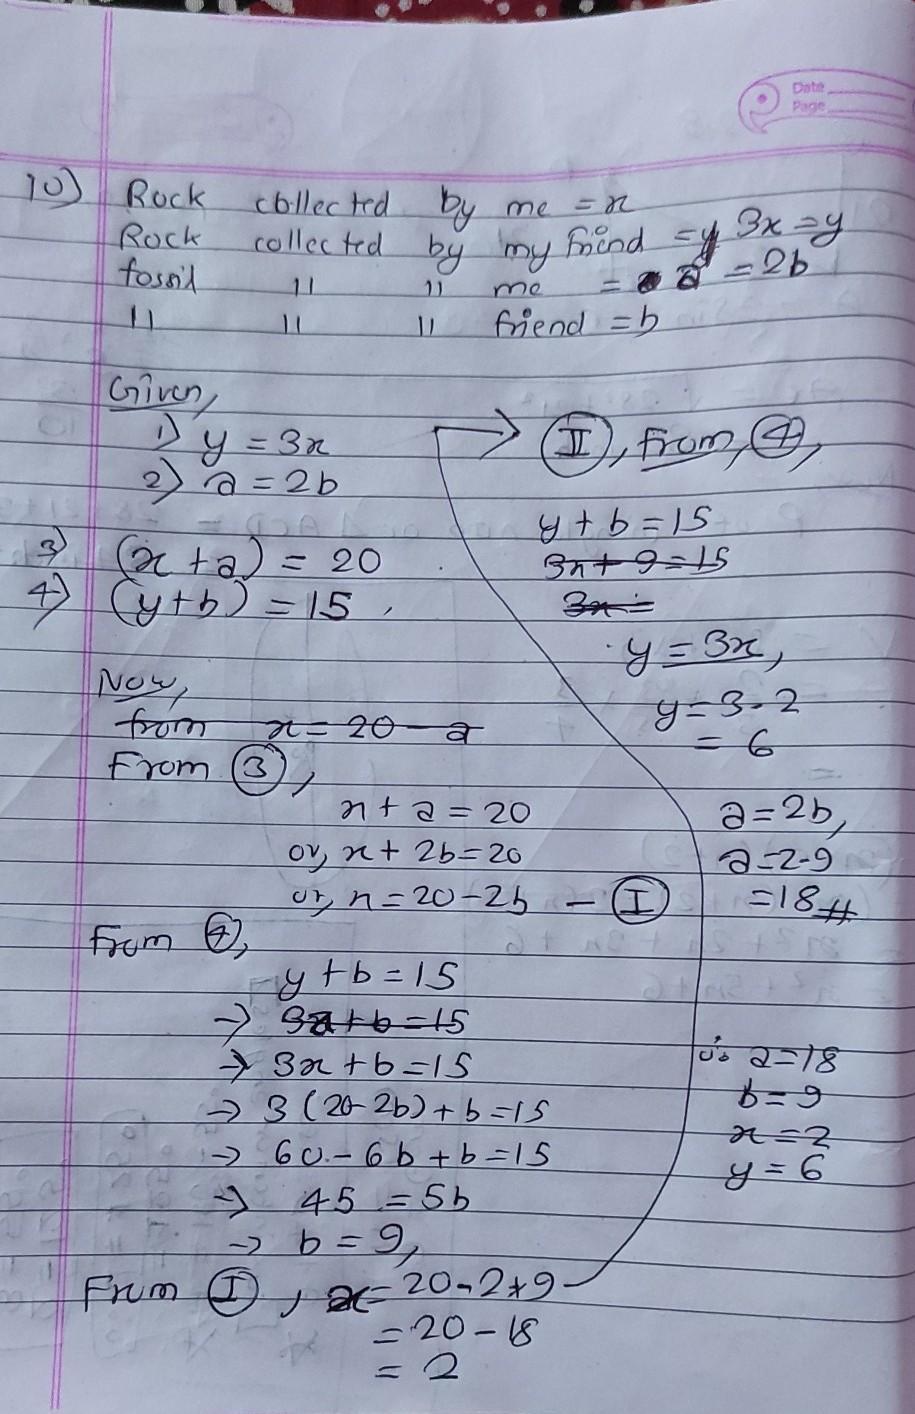 Date
Page
10) Rock collected by me = x
Rock collected by my friend = y 3x = y
fossil 11 11 me = a = 2b
11 11 11 friend = b
Given,
1) y = 3x
2) a = 2b
3) (x + a) = 20
4) (y + b) = 15,
Now,
from x = 20 - a
From (3),
x + a = 20
or, x + 2b = 20
or, x = 20 - 2b - (I)
From (4),
y + b = 15
→ 3x + b = 15
→ 3x + b = 15
→ 3 (20 - 2b) + b = 15
→ 60 - 6b + b = 15
→ 45 = 5b
→ b = 9,
From (I), x = 20 - 2 * 9
= 20 - 18
= 2
→ (II), From, (4),
y + b = 15
3x + 9 = 15
3x =
y = 3x,
y = 3 · 2
= 6
a = 2b,
a = 2 · 9
= 18 #
∴ a = 18
b = 9
x = 2
y = 6